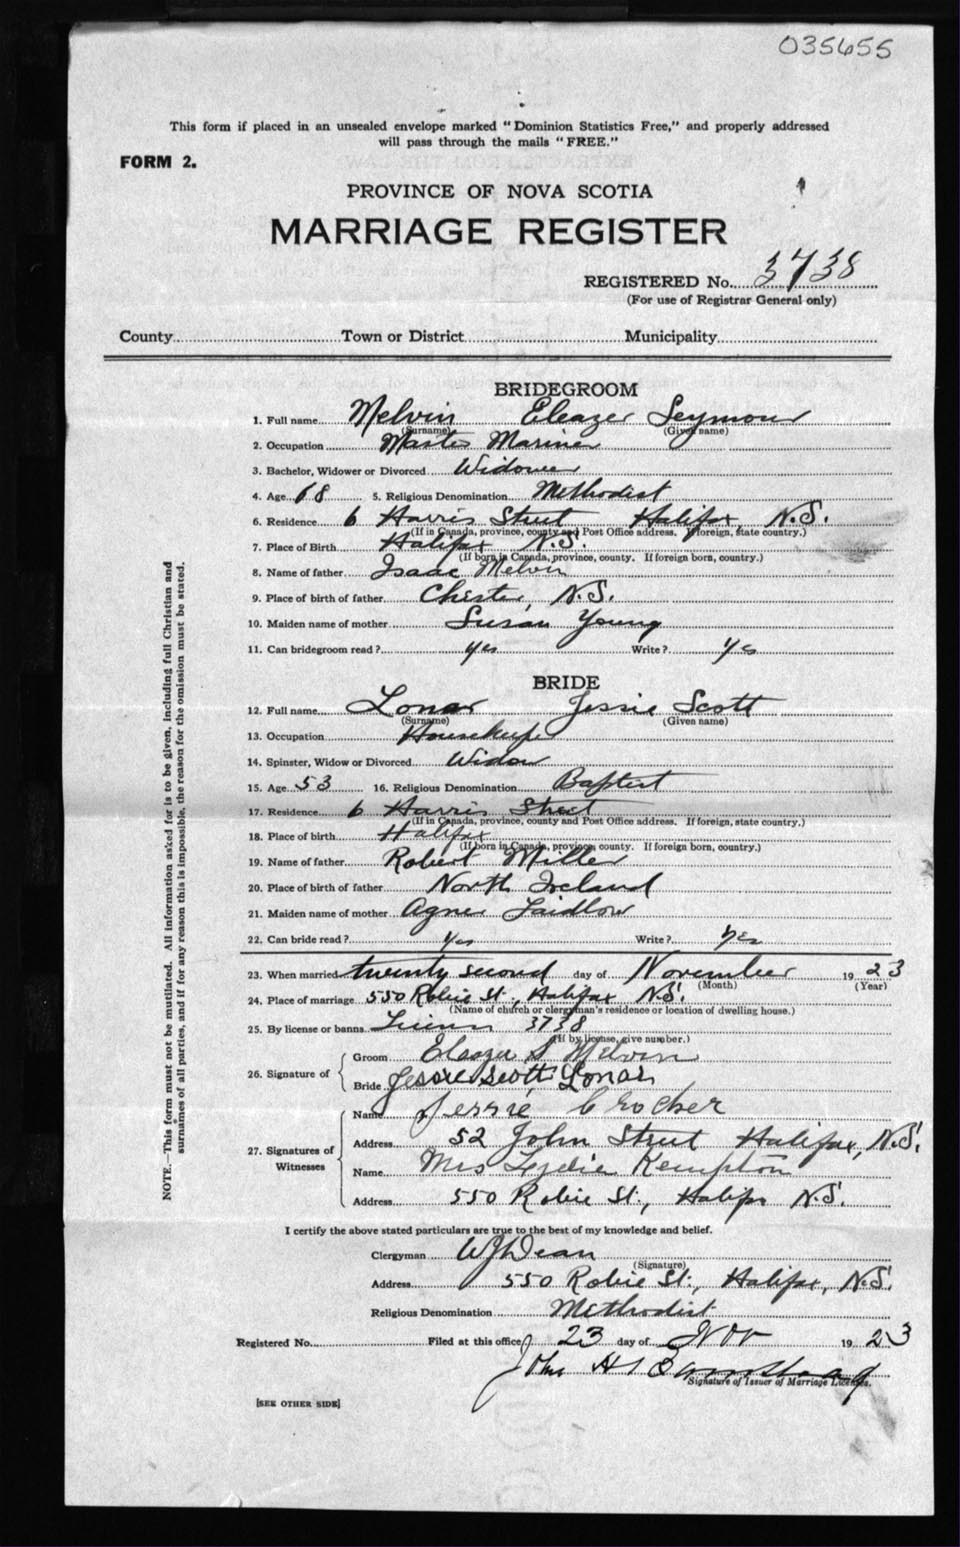 035655
This form if placed in an unsealed envelope marked "Dominion Statistics Free," and properly addressed
will pass through the mails "FREE."
FORM 2.
PROVINCE OF NOVA SCOTIA
MARRIAGE REGISTER
REGISTERED No. 3738
(For use of Registrar General only)
County Town or District Municipality
BRIDEGROOM
1. Full name Melvin Eleazer Seymour
(Surname) (Given name)
2. Occupation Master Mariner
3. Bachelor, Widower or Divorced Widower
4. Age 68 5. Religious Denomination Methodist
6. Residence 6 Harris Street Halifax, N.S.
(If in Canada, province, county and Post Office address. If foreign, state country.)
7. Place of Birth Halifax N.S.
(If born in Canada, province, county. If foreign born, country.)
8. Name of father Isaac Melvin
9. Place of birth of father Chester, N.S.
10. Maiden name of mother Susan Young
11. Can bridegroom read? yes Write? yes
BRIDE
12. Full name Lonar Jessie Scott
(Surname) (Given name)
13. Occupation Housekeeper
14. Spinster, Widow or Divorced Widow
15. Age 53 16. Religious Denomination Baptist
17. Residence 6 Harris Street
(If in Canada, province, county and Post Office address. If foreign, state country.)
18. Place of birth Halifax
(If born in Canada, province, county. If foreign born, country.)
19. Name of father Robert Miller
20. Place of birth of father North Ireland
21. Maiden name of mother Agnes Laidlow
22. Can bride read? Yes Write? Yes
23. When married twenty second day of November 1923
(Month) (Year)
24. Place of marriage 550 Robie St., Halifax N.S.
(Name of church or clergyman's residence or location of dwelling house.)
25. By license or banns 3738
(If by license, give number.)
26. Signature of
Groom Eleazer S Melvin
Bride Jessie Scott Lonar
27. Signatures of Witnesses
Name Jessie Crocker
Address 52 John Street Halifax, N.S.
Name Mrs Lydie Kempton
Address 550 Robie St., Halifax N.S.
I certify the above stated particulars are true to the best of my knowledge and belief.
Clergyman W J Dean
(Signature)
Address 550 Robie St., Halifax, N.S.
Religious Denomination Methodist
Registered No. Filed at this office 23 day of Nov 1923
John H
Signature of Issuer of Marriage Licenses.
[SEE OTHER SIDE]
NOTE.—This form must not be mutilated. All information asked for is to be given, including full Christian and
surnames of all parties, and if for any reason this is impossible, the reason for the omission must be stated.